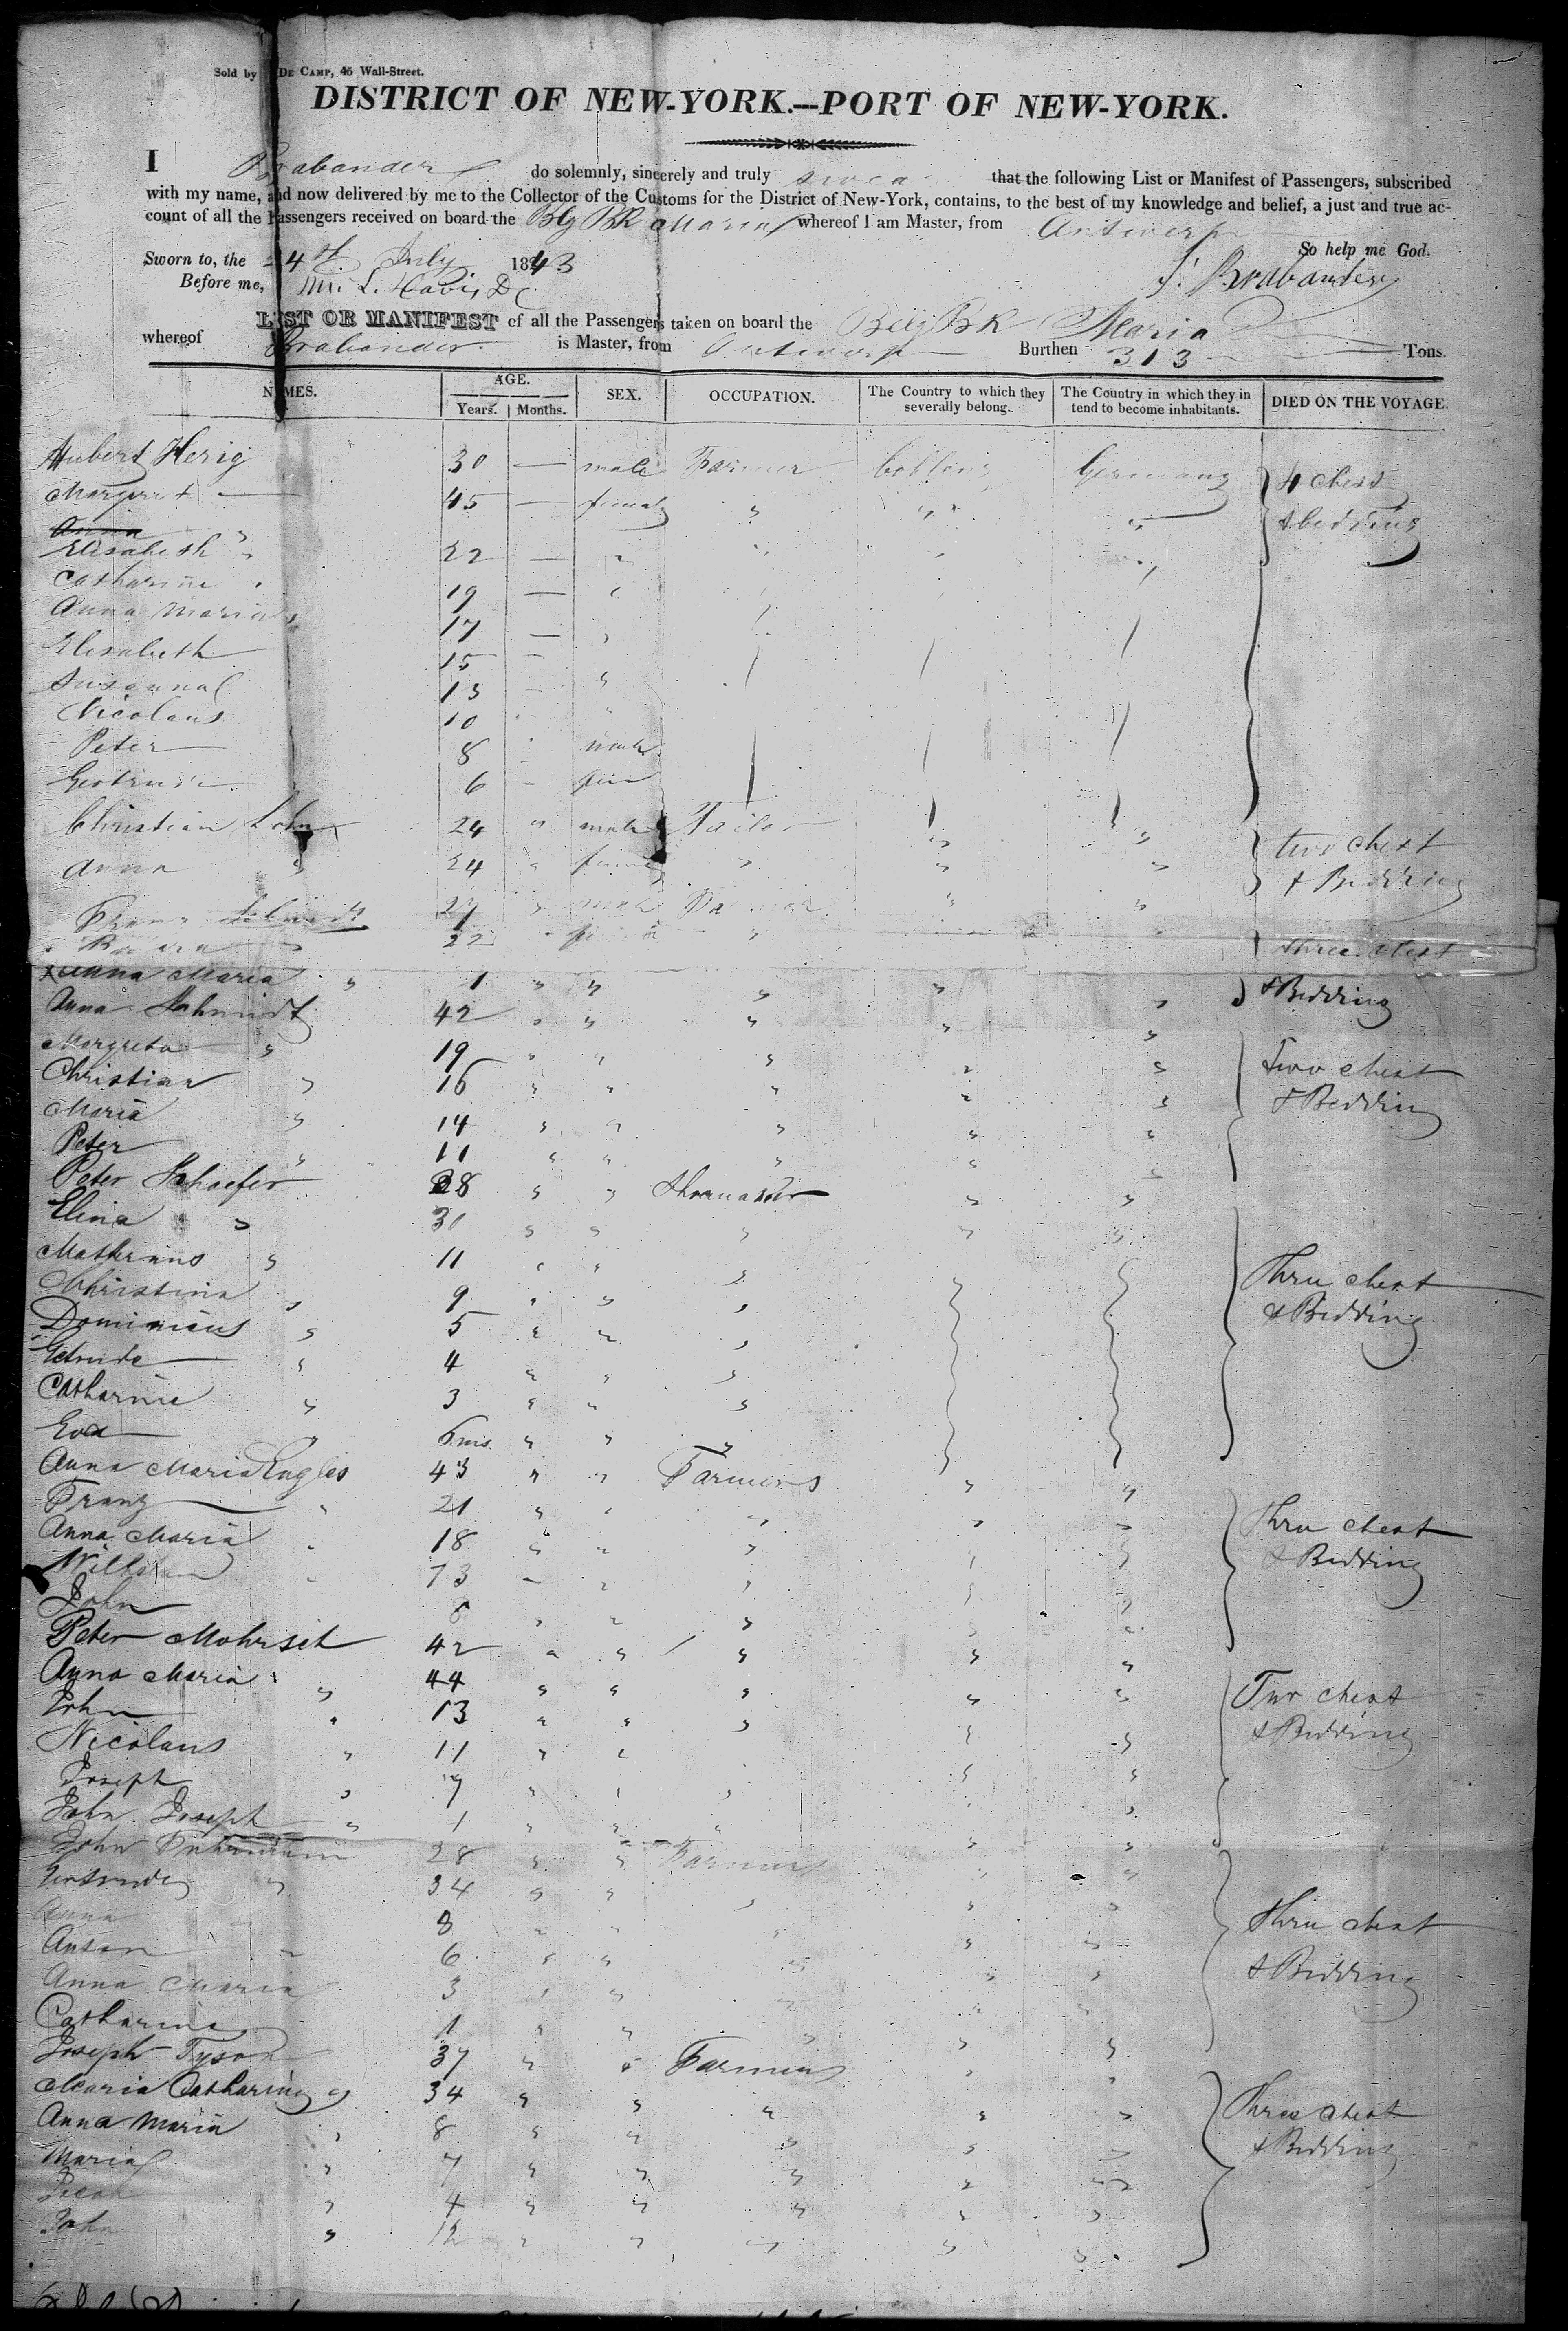 Sold by DE CAMP, 45 Wall-Street.
DISTRICT OF NEW-YORK.—PORT OF NEW-YORK.
I Brabander do solemnly, sincerely and truly swear that the following List or Manifest of Passengers, subscribed
with my name, and now delivered by me to the Collector of the Customs for the District of New-York, contains, to the best of my knowledge and belief, a just and true ac-
count of all the Passengers received on board the Blg BK Maria whereof I am Master, from Antwerp
So help me God.
Sworn to, the 4th July 1843
J. Brabander
Before me,
LIST OR MANIFEST of all the Passengers taken on board the Belg BK Maria
whereof Brabander is Master, from Antwerp Burthen 313 Tons.
NAMES. AGE. SEX. OCCUPATION. The Country to which they severally belong. The Country in which they in tend to become inhabitants. DIED ON THE VOYAGE.
Years. Months.
Hubert Herig 30 — male Farmer Coblenz Germany 4 chest
Margaret — 45 — female " " " & bedding
Anna "
Elisabeth " 22 — "
Catharine " 19 — "
Anna Maria 17 — "
Elisabeth 15 —
Susanna 13 — "
Nicolaus 10
Peter 8 male
Gertrude 6 — fem
Christian 24 " male Tailor " " two chest
Anna " 24 " female " " " & Bedding
Franz Schmidt 27 " male Farmer " "
22 " " three chest
Anna Maria " 1 " " " " " & Bedding
Anna Schmidt 42 " " " " "
Margreta " 19 " " " " " Two chest
Christian " 16 " " " " " & Bedding
Maria " 14 " " " " "
Peter " 11 " " " " "
Peter Schaefer 38 " " Shoemaker " "
Elina " 30 " " " " "
Matheans " 11 " " " Thre chest
Christina " 9 " " " & Bedding
Dominicus " 5 " " "
Getrude " 4 " " "
Catharine " 3 " " "
Eva " 6 ms " " "
Anna Maria Engles 43 " " Farmers " "
Franz " 21 " " " " " Thre chest
Anna Maria " 18 " " " " " & Bedding
William " 13 " " " " "
John 8 " " " " "
Peter Mohrsch 42 " " " " "
Anna Maria " 44 " " " " " Two chest
John " 13 " " " " " & Bedding
Nicolaus " 11 " " " "
Joseph " 7 " " " " "
John Joseph " 1 " " " " "
John 28 " " Farmers " "
Gertrude " 34 " " " " "
Anna 8 " " " " " Thre chest
Anton " 6 " " " " " & Bedding
Anna Maria 3 " " " " "
Catharina 1 " " " " "
Joseph Tyson 37 " " Farmers " "
Maria Catharina " 34 " " " " " Three chest
Anna Maria " 8 " " " " " & Bedding
Maria " 7 " " " " "
" 4 " " " " "
John " 12 " " " " "